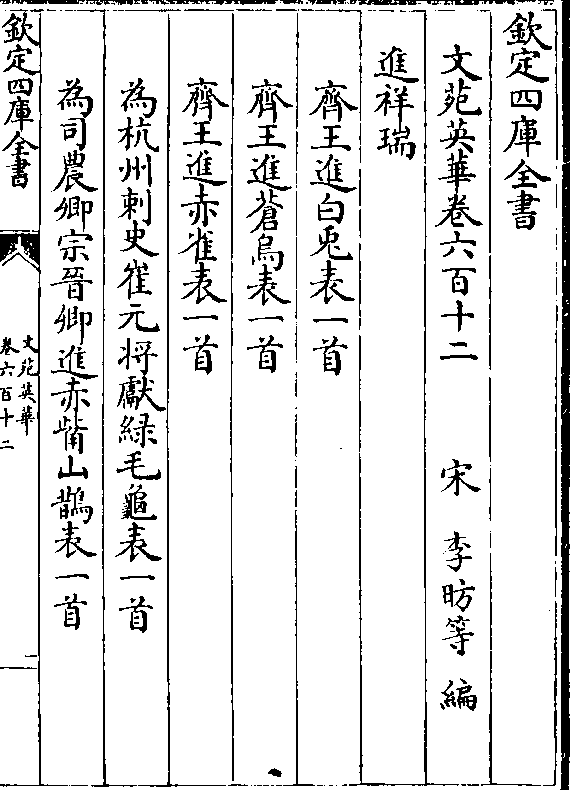 欽定四庫全書
文苑英華卷六百十二　宋　李昉等　編
進祥瑞
齊王進白兎表一首
齊王進蒼烏表一首
齊王進赤雀表一首
為杭州刺史崔元将獻緑毛龜表一首
為司農卿宗晉卿進赤觜山鵲表一首
欽定四庫全書
文苑英華
卷六百十二
一